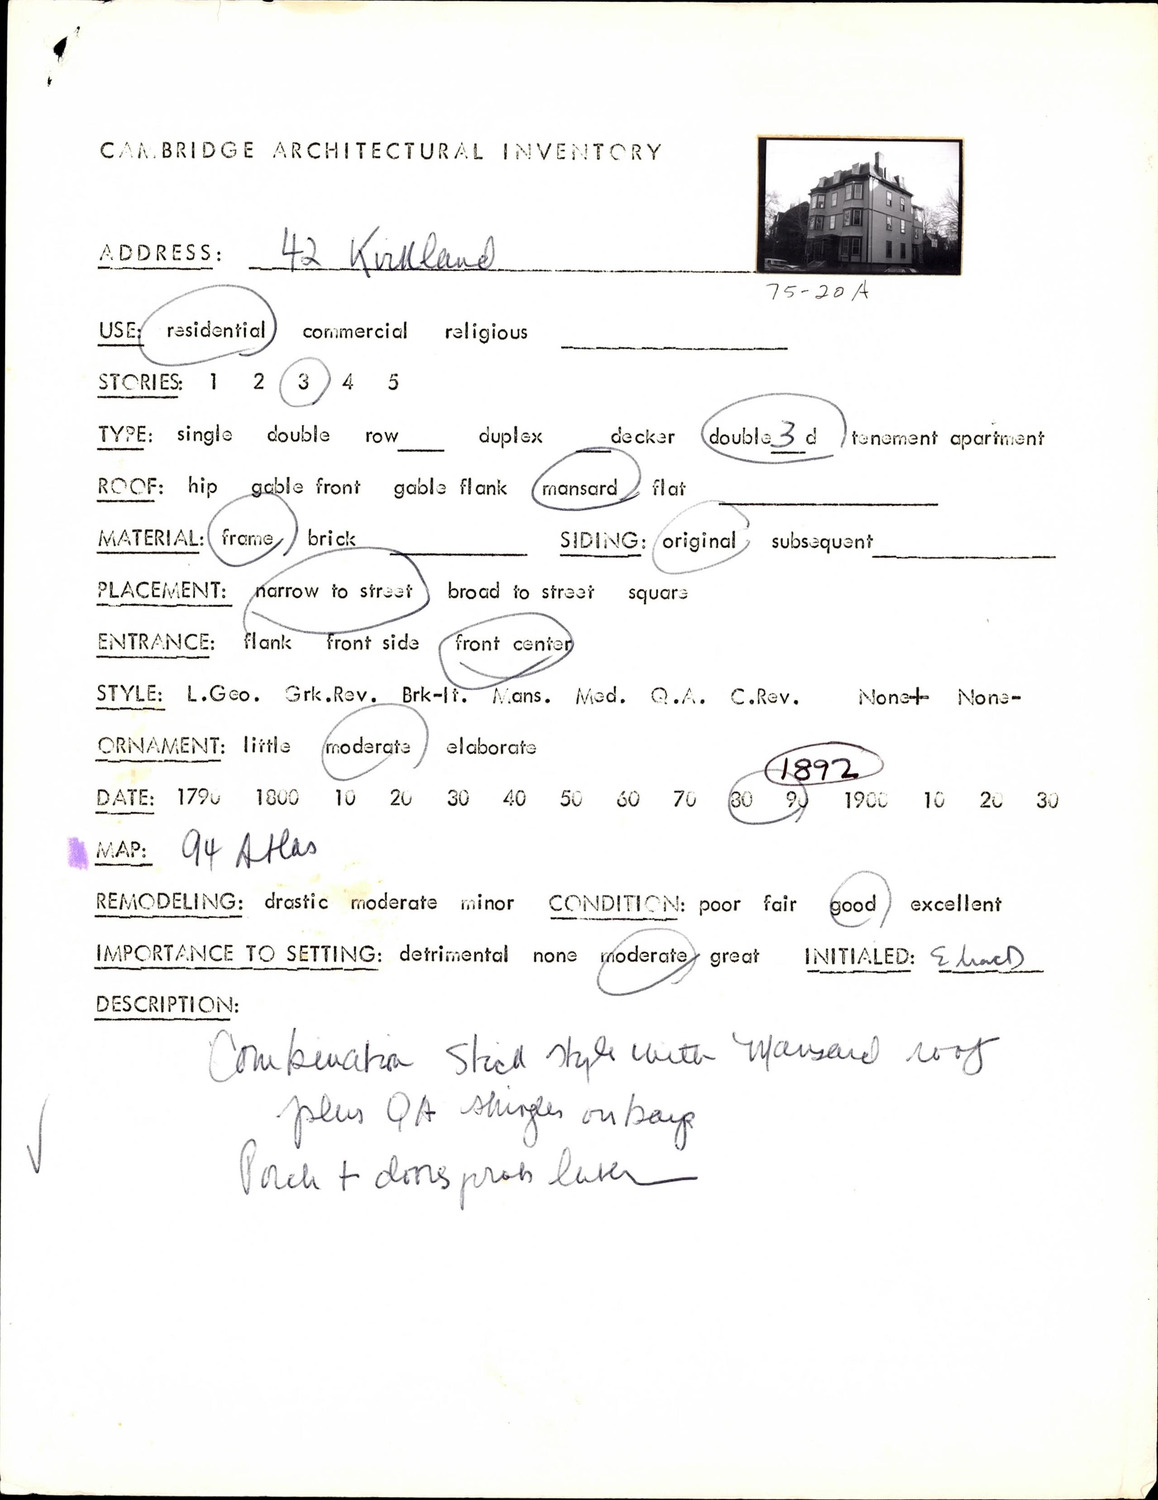 CAMBRIDGE ARCHITECTURAL INVENTORY
ADDRESS: 42 Kirkland
75-20A
USE: residential commercial religious
STORIES: 1 2 3 4 5
TYPE: single double row___ duplex ___decker double 3 d tenement apartment
ROOF: hip gable front gable flank mansard flat
MATERIAL: frame brick SIDING: original subsequent
PLACEMENT: narrow to street broad to street square
ENTRANCE: flank front side front center
STYLE: L.Geo. Grk.Rev. Brk-It. Mans. Med. Q.A. C.Rev. None+ None-
ORNAMENT: little moderate elaborate
1892
DATE: 1790 1800 10 20 30 40 50 60 70 80 90 1900 10 20 30
MAP: 94 Atlas
REMODELING: drastic moderate minor CONDITION: poor fair good excellent
IMPORTANCE TO SETTING: detrimental none moderate great INITIALED:
DESCRIPTION:
Combination Stick style with Mansard roof
plus QA shingles on bays
Porch + doors prob later